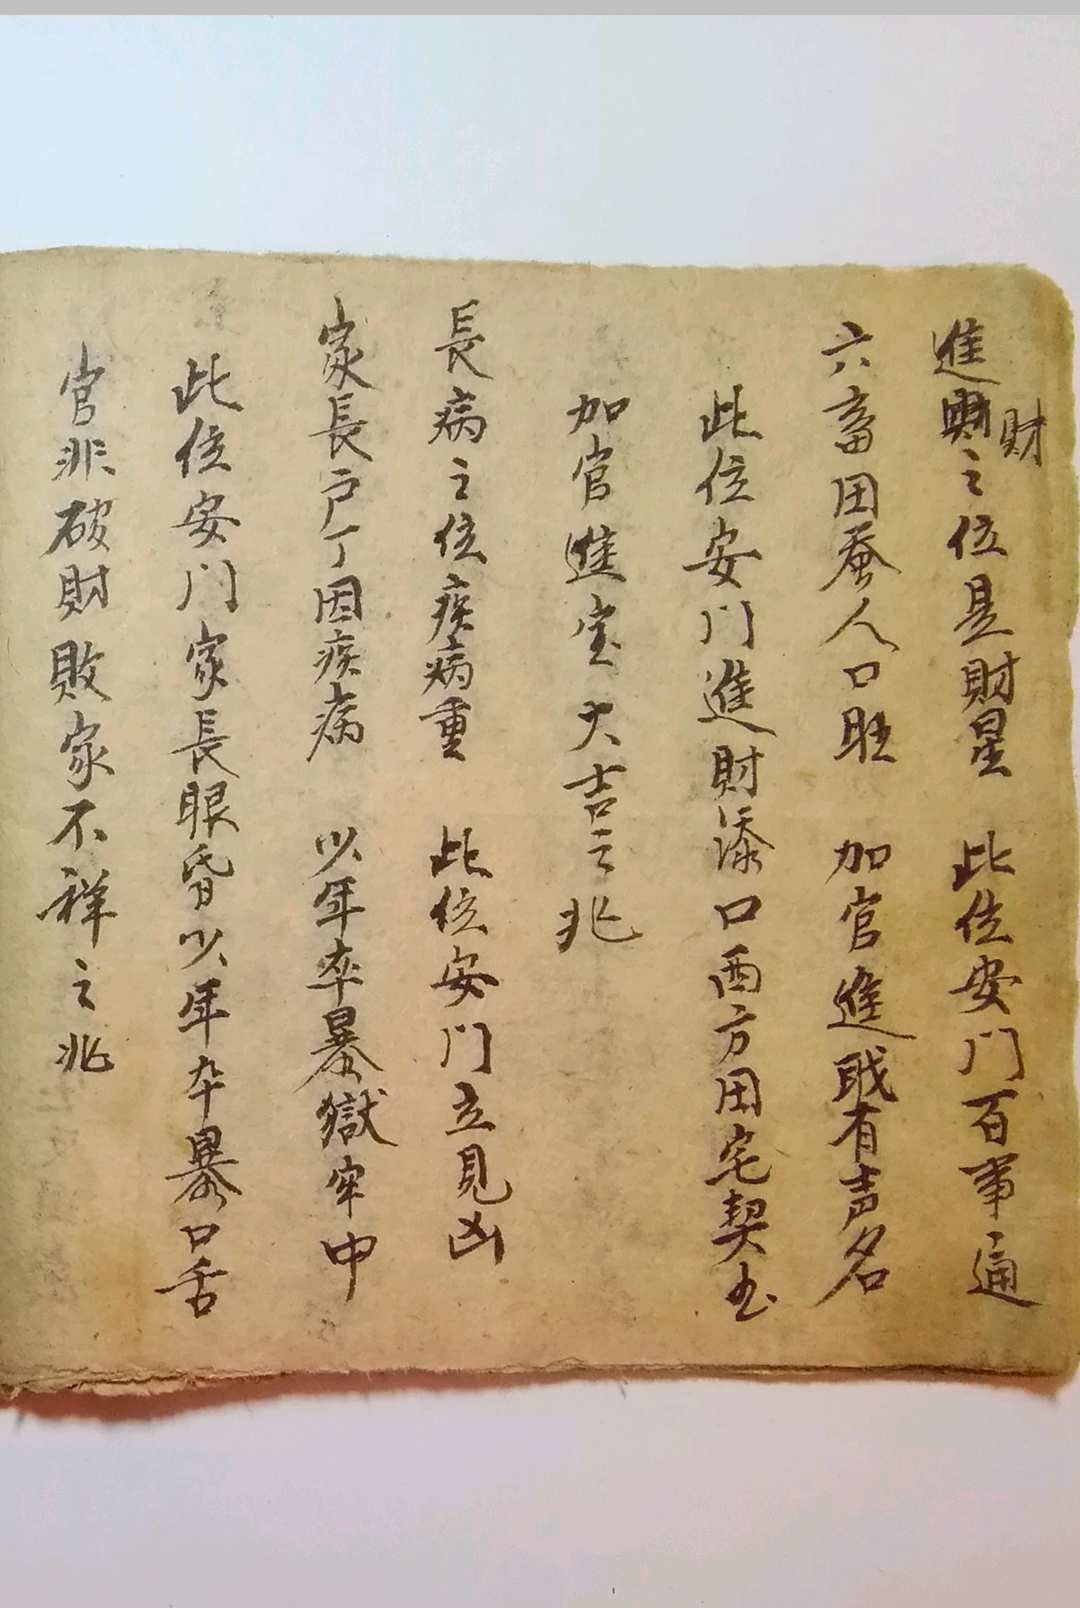 進財之位是財星　此位安门百事通
財
六畜田蚕人口旺　加官進职有声名
此位安门進財添口西方田宅契书
加官進宝大吉之兆
長病之位疾病重　此位安门立見凶
家長户丁因疾病　少年卒暴獄牢中
此位安门家長眼昏少年卒暴口舌
官非破財敗家不祥之兆